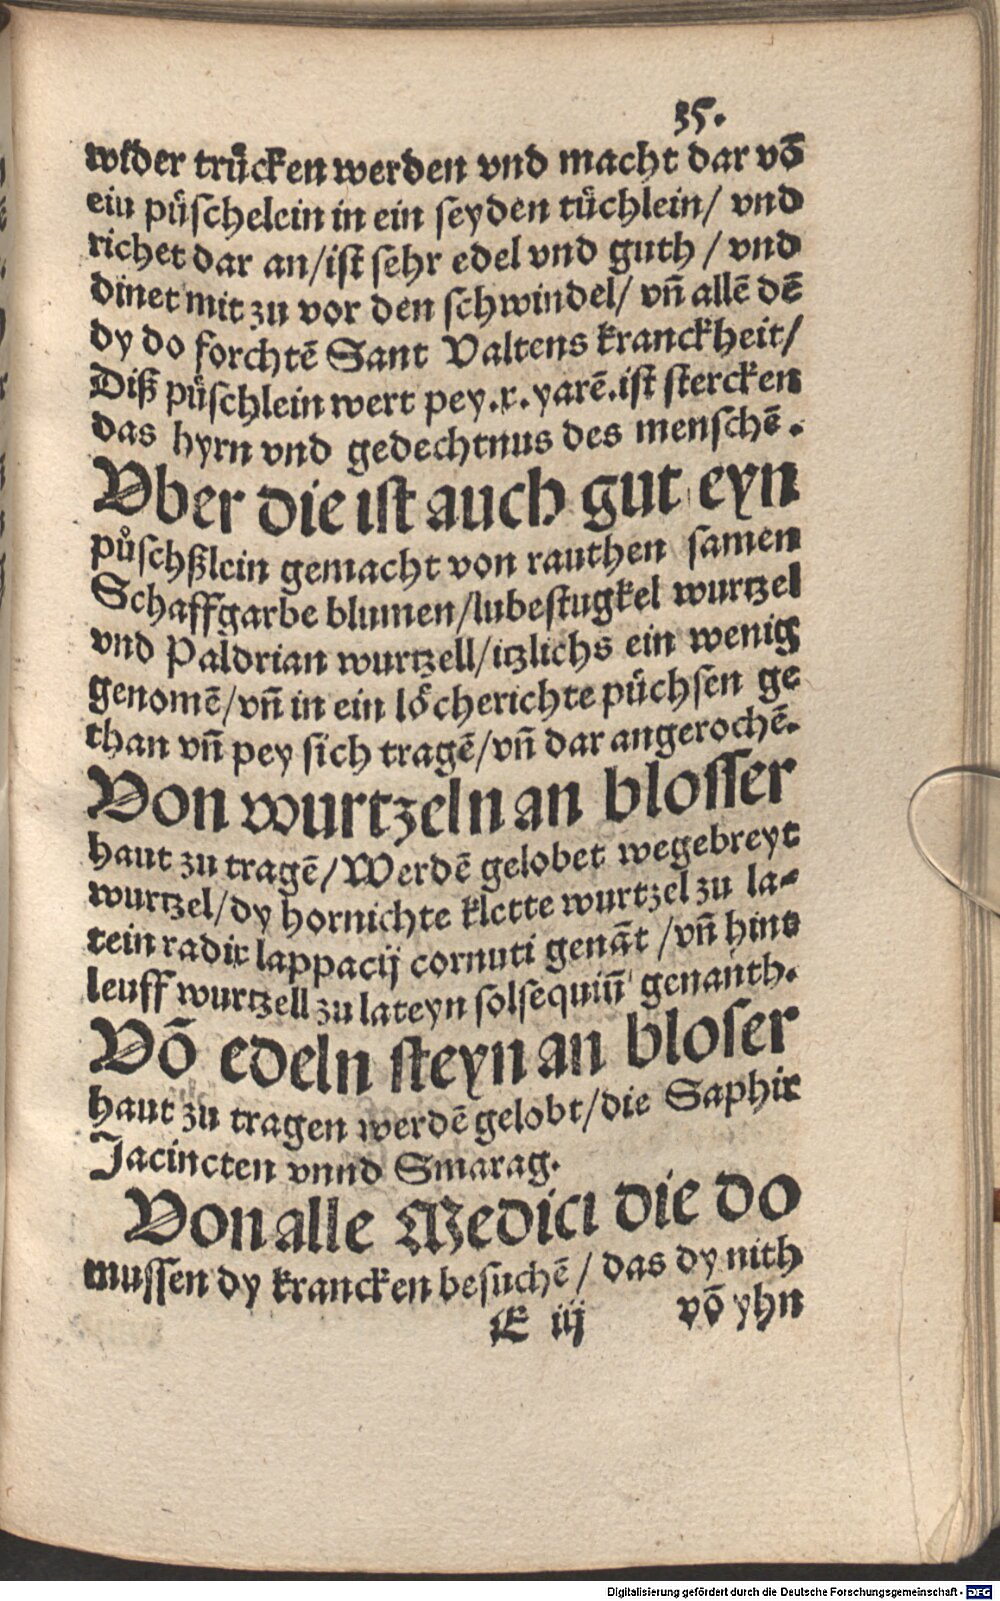 35.
wider trůcken werden vnd macht dar võ
ein půschelein in ein seyden tůchlein/ vnd
richet dar an/ist sehr edel vnd guth / vnd
dinet mit zu vor den schwindel/ vñ allẽ dẽ
dy do forchtẽ Sant Valtens kranckheit/
Diß půschlein wert pey.x.yarẽ.ist stercken
das hyrn vnd gedechtnus des menschẽ.
Vber die ist auch gut eyn
půschßlein gemacht von rauthen samen
Schaffgarbe blumen/lubestugkel wurtzel
vnd Paldrian wurtzell/itzlichs ein wenig
genomẽ/vñ in ein lőcherichte půchsen ge
than vñ pey sich tragẽ/vñ dar angerochẽ.
Von wurtzeln an blosser
haut zu tragẽ/Werdẽ gelobet wegebreyt
wurtzel/dy hornichte klette wurtzel zu la-
tein radix lappacij cornuti genãt /vñ hint
leuff wurtzell zu lateyn solsequiũ genanth.
Võ edeln steyn an bloser
haut zu tragen werdẽ gelobt/die Saphir
Jacincten vnnd Smarag.
Von alle Medici die do
mussen dy krancken besuchẽ / das dy nith
E iij võ yhn
Digitalisierung gefördert durch die Deutsche Forschungsgemeinschaft - DFG